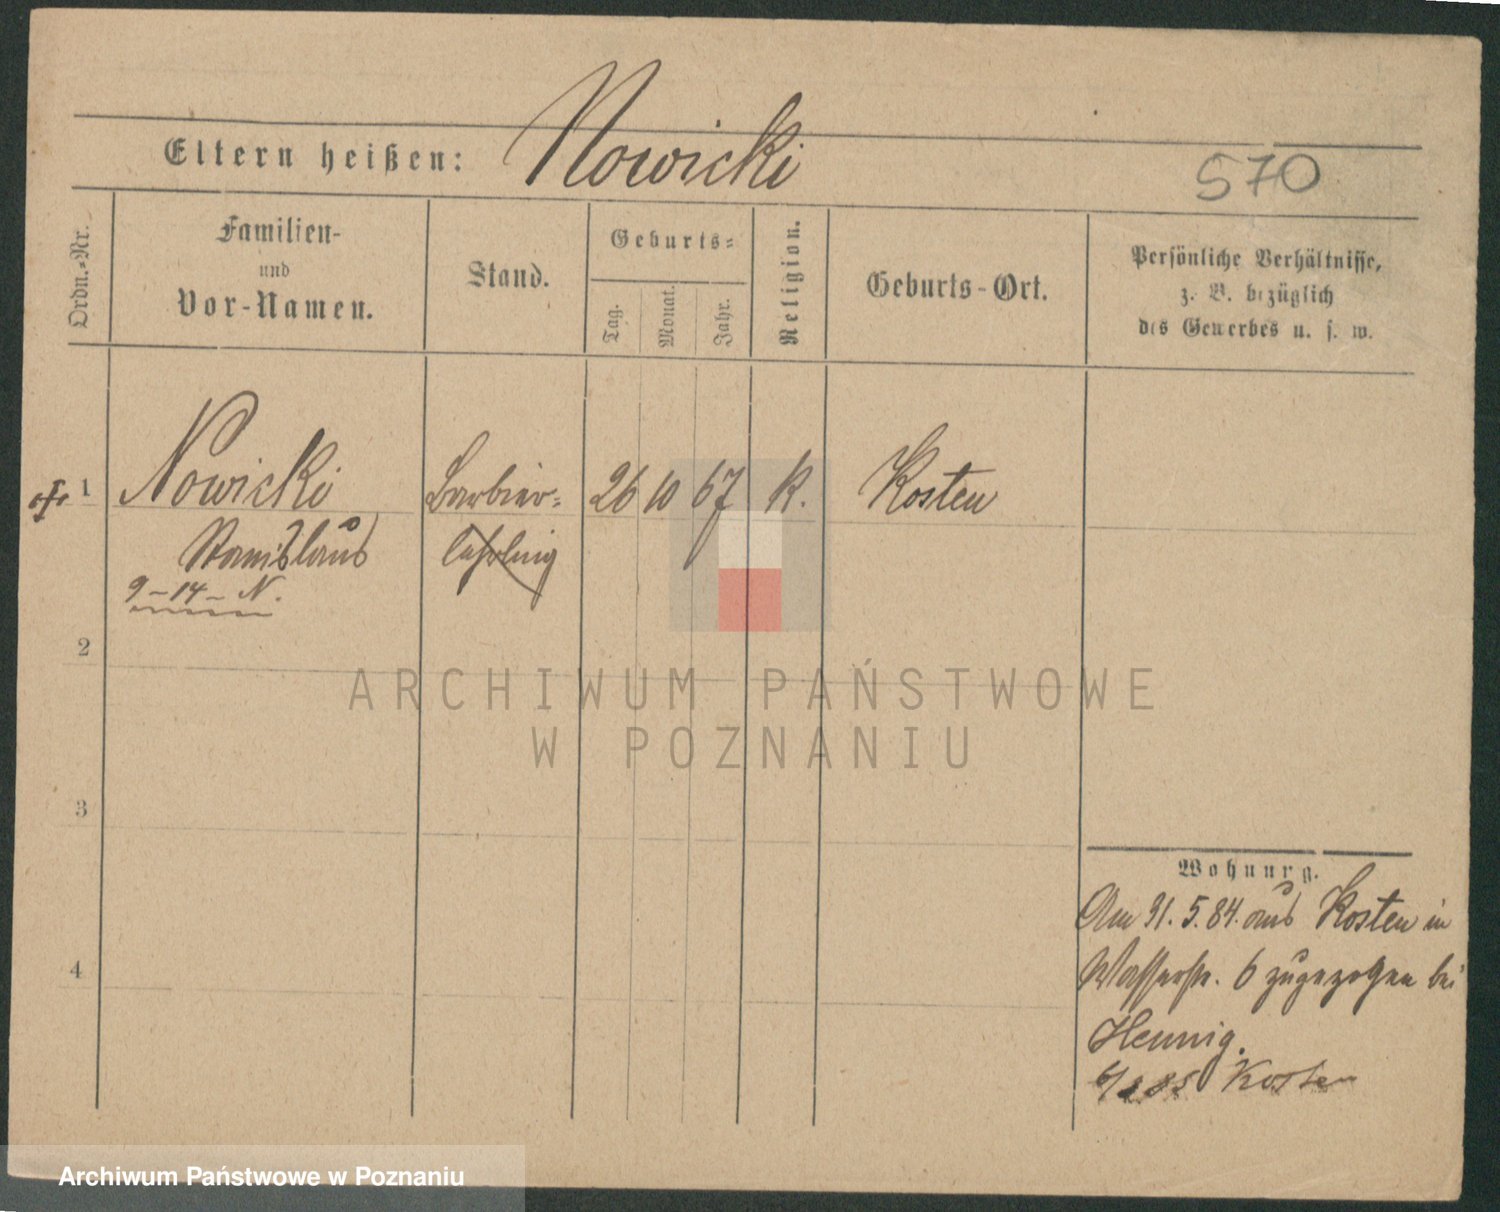 Eltern heißen: Nowicki
570
Ordn.-Nr.
Familien-
und
Vor-Namen.
Stand.
Geburts-
Tag.
Monat.
Jahr.
Religion.
Geburts-Ort.
Persönliche Verhältnisse,
z. B. bezüglich
des Gewerbes u. s. w.
1 Nowicki Barbier- 26 10 67 K. Kosten
Stanislaus lehrling
9-14-N.
2
ARCHIWUM PAŃSTWOWE
W POZNANIU
3
Wohnung.
Am 31.5.84. aus Kosten in
4
Wasserstr. 6 zugezogen bei
Hennig.
Kosten
Archiwum Państwowe w Poznaniu